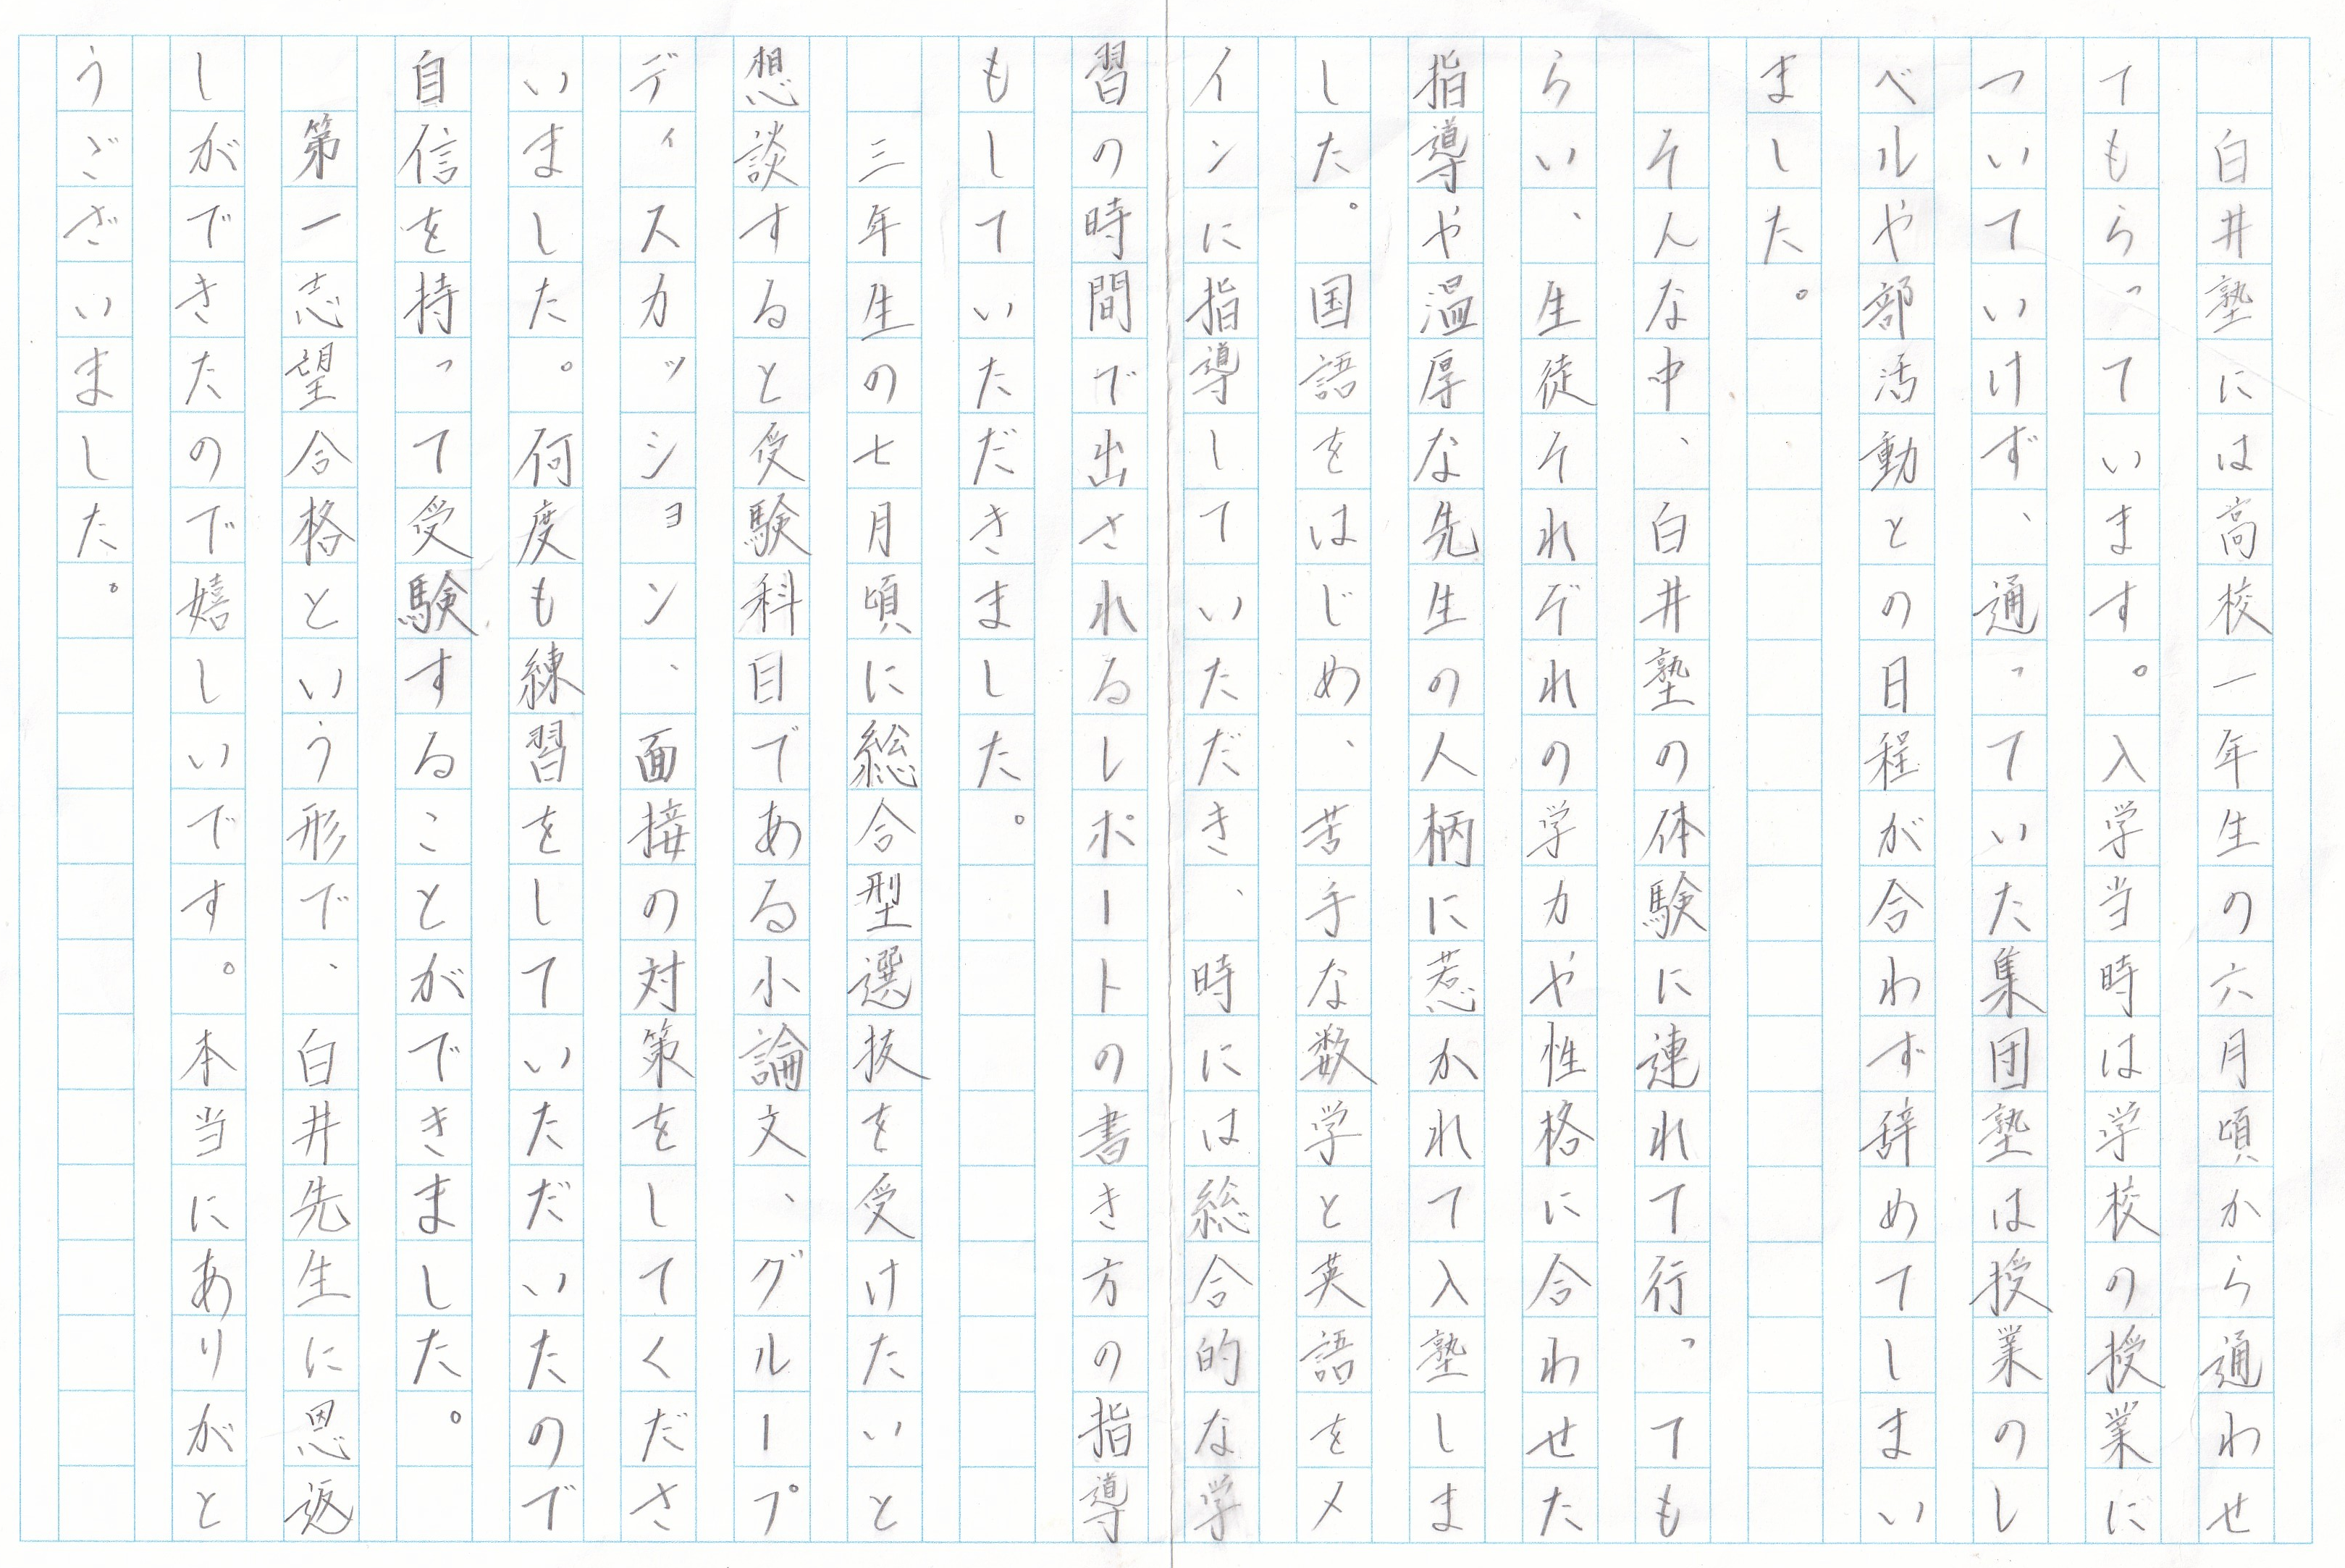 白井塾には高校一年生の六月頃から通わせ
てもらっています。入学当時は学校の授業に
ついていけず、通っていた集団塾は授業のレ
ベルや部活動との日程が合わず辞めてしまい
ました。
そんな中、白井塾の体験に連れて行っても
らい、生徒それぞれの学力や性格に合わせた
指導や温厚な先生の人柄に惹かれて入塾しま
した。国語をはじめ、苦手な数学と英語をメ
インに指導していただき、時には総合的な学
習の時間で出されるレポートの書き方の指導
もしていただきました。
三年生の七月頃に総合型選抜を受けたいと
想談すると受験科目である小論文、グループ
ディスカッション、面接の対策をしてくださ
いました。何度も練習をしていただいたので
自信を持って受験することができました。
第一志望合格という形で、白井先生に恩返
しができたので嬉しいです。本当にありがと
うございました。